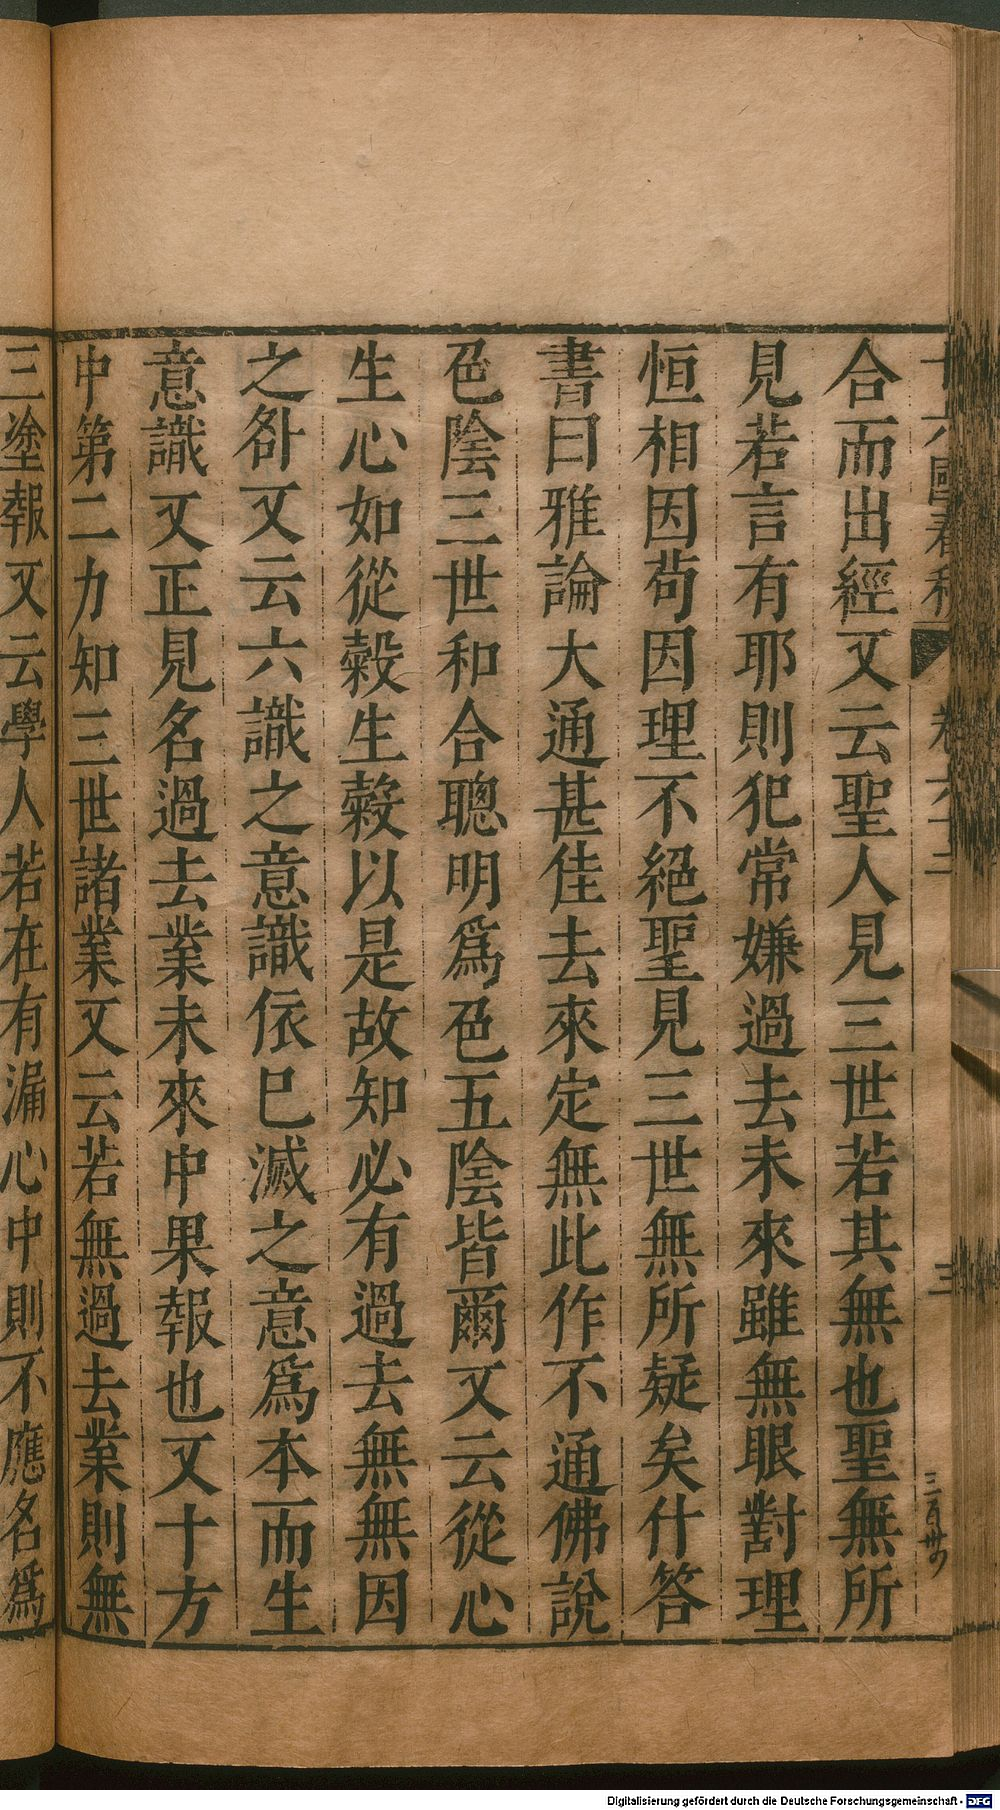 合而出經又云聖人見三世若其無也聖無所
見若言有耶則犯常嫌過去未來雖無眼對理
恒相因苟因理不絕聖見三世無所疑矣什答
書曰雅論大通甚佳去來定無此作不通佛說
色陰三世和合聰明爲色五陰皆爾又云從心
生心如從榖生榖以是故知必有過去無無因
之咎又云六識之意識依巳滅之意爲本而生
意識又正見名過去業未來中果報也又十方
中第二力知三世諸業又云若無過去業則無
三塗報又云學人若在有漏心中則不應名爲
十六國春秋 卷六十二 三
三百卅
Digitalisierung gefördert durch die Deutsche Forschungsgemeinschaft - DFG